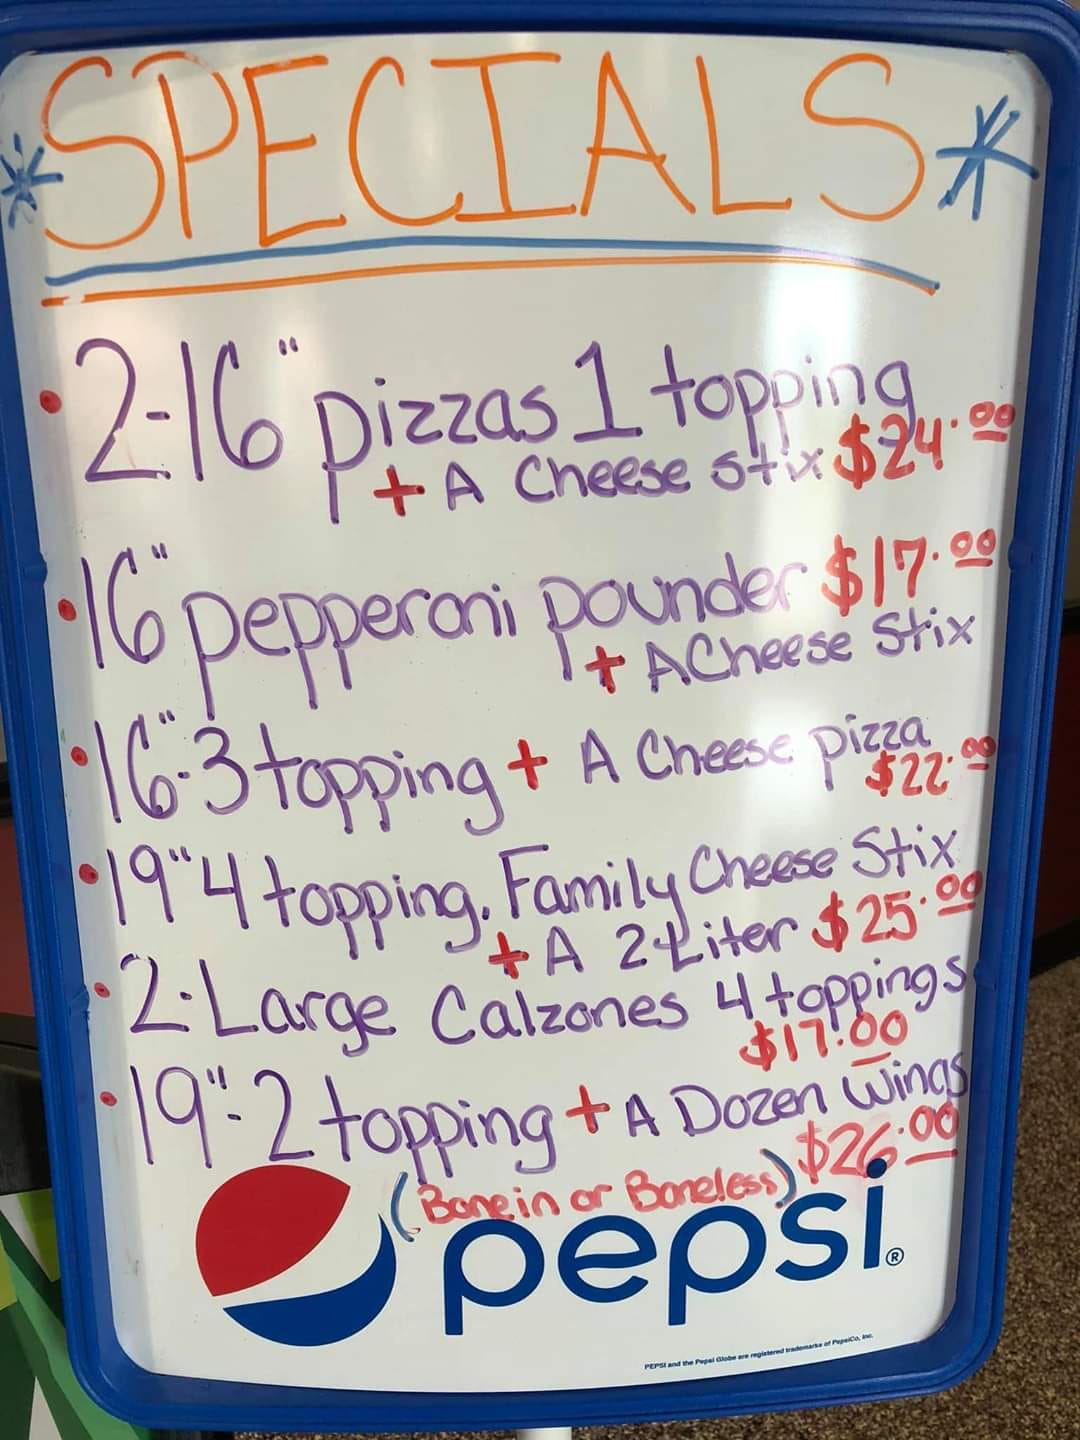 *SPECIALS*
• 2-16" pizzas 1 topping
+ A Cheese Stix $24.00
• 16" pepperoni pounder $17.00
+ A Cheese Stix
• 16"-3 topping + A Cheese pizza
$22.00
• 19" 4 topping, Family Cheese Stix
+ A 2 Liter $25.00
• 2-Large Calzones 4 toppings
$17.00
• 19"-2 topping + A Dozen wings
(Bonein or Boneless) $26.00
pepsi®
PEPSI and the Pepsi Globe are registered trademarks of PepsiCo, Inc.